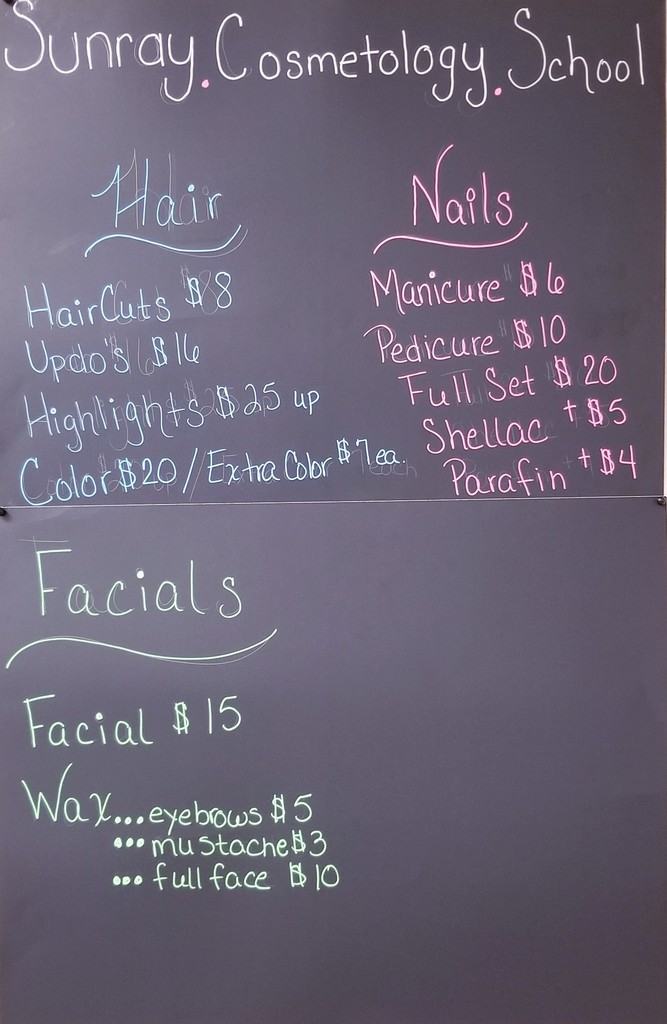 Sunray. Cosmetology. School
Hair
HairCuts $8
Updo's $16
Highlights $25 up
Color $20 // Extra Color $7 ea.
Nails
Manicure $6
Pedicure $10
Full Set $20
Shellac + $5
Parafin + $4
Facials
Facial $15
Wax... eyebrows $5
... mustache $3
... full face $10